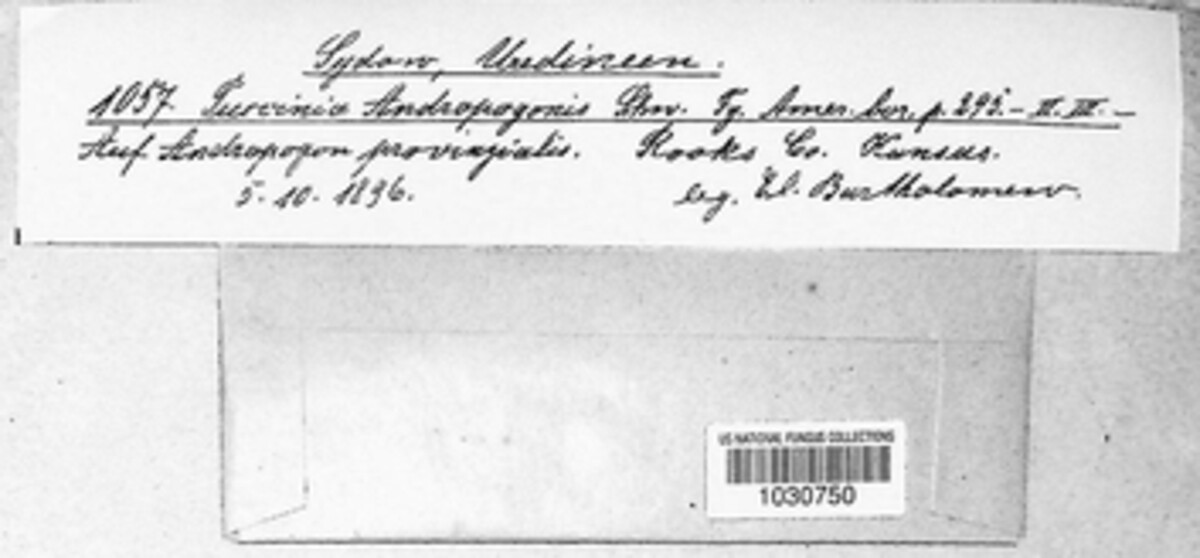 Sydow, Uredineen.
1057. Puccinia Andropogonis Schw. Fg. Amer. bor. p. 295. – II. III. –
Auf Andropogon provinzialis. Rooks Co. Kansas.
5. 10. 1896. leg. El. Bartholomew.
US NATIONAL FUNGUS COLLECTIONS
1030750